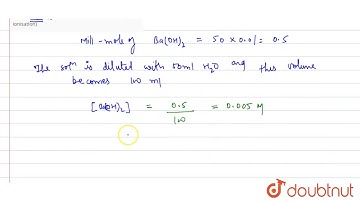 ionisation)
Milli-mole of Ba(OH)₂ = 50 × 0.01 = 0.5
The solⁿ is diluted with 50ml H₂O and thus volume
becomes 100 ml
[Ba(OH)₂] = 0.5/100 = 0.005 M
doubtnut